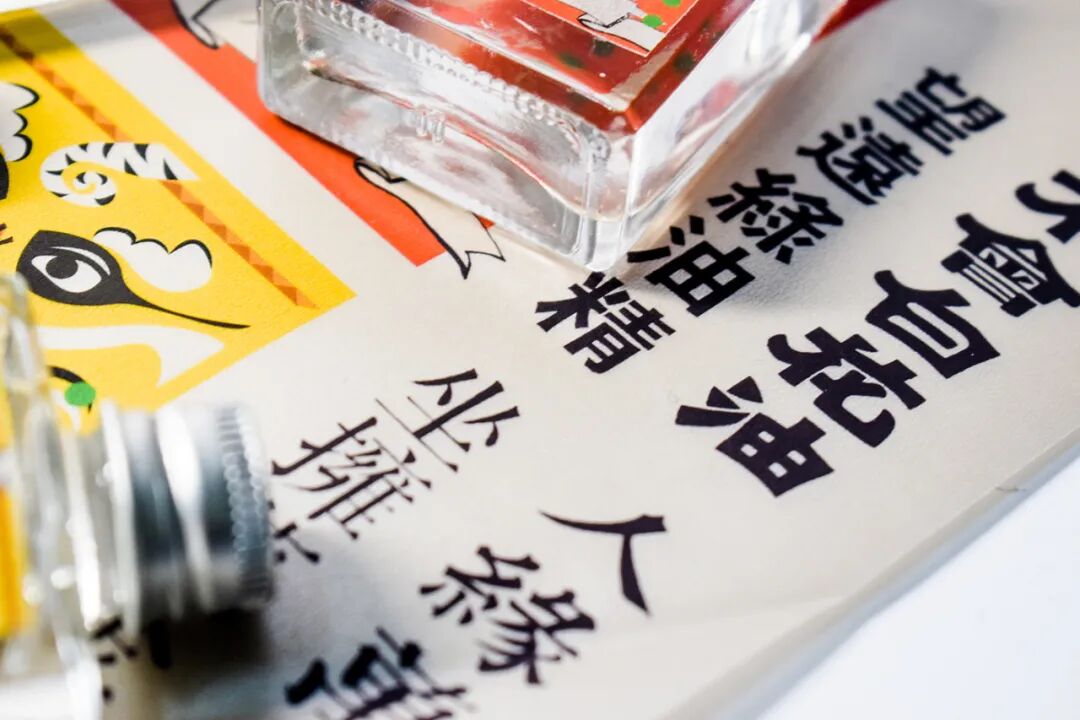 不會白花油
望遠綠油精
人緣萬
坐擁